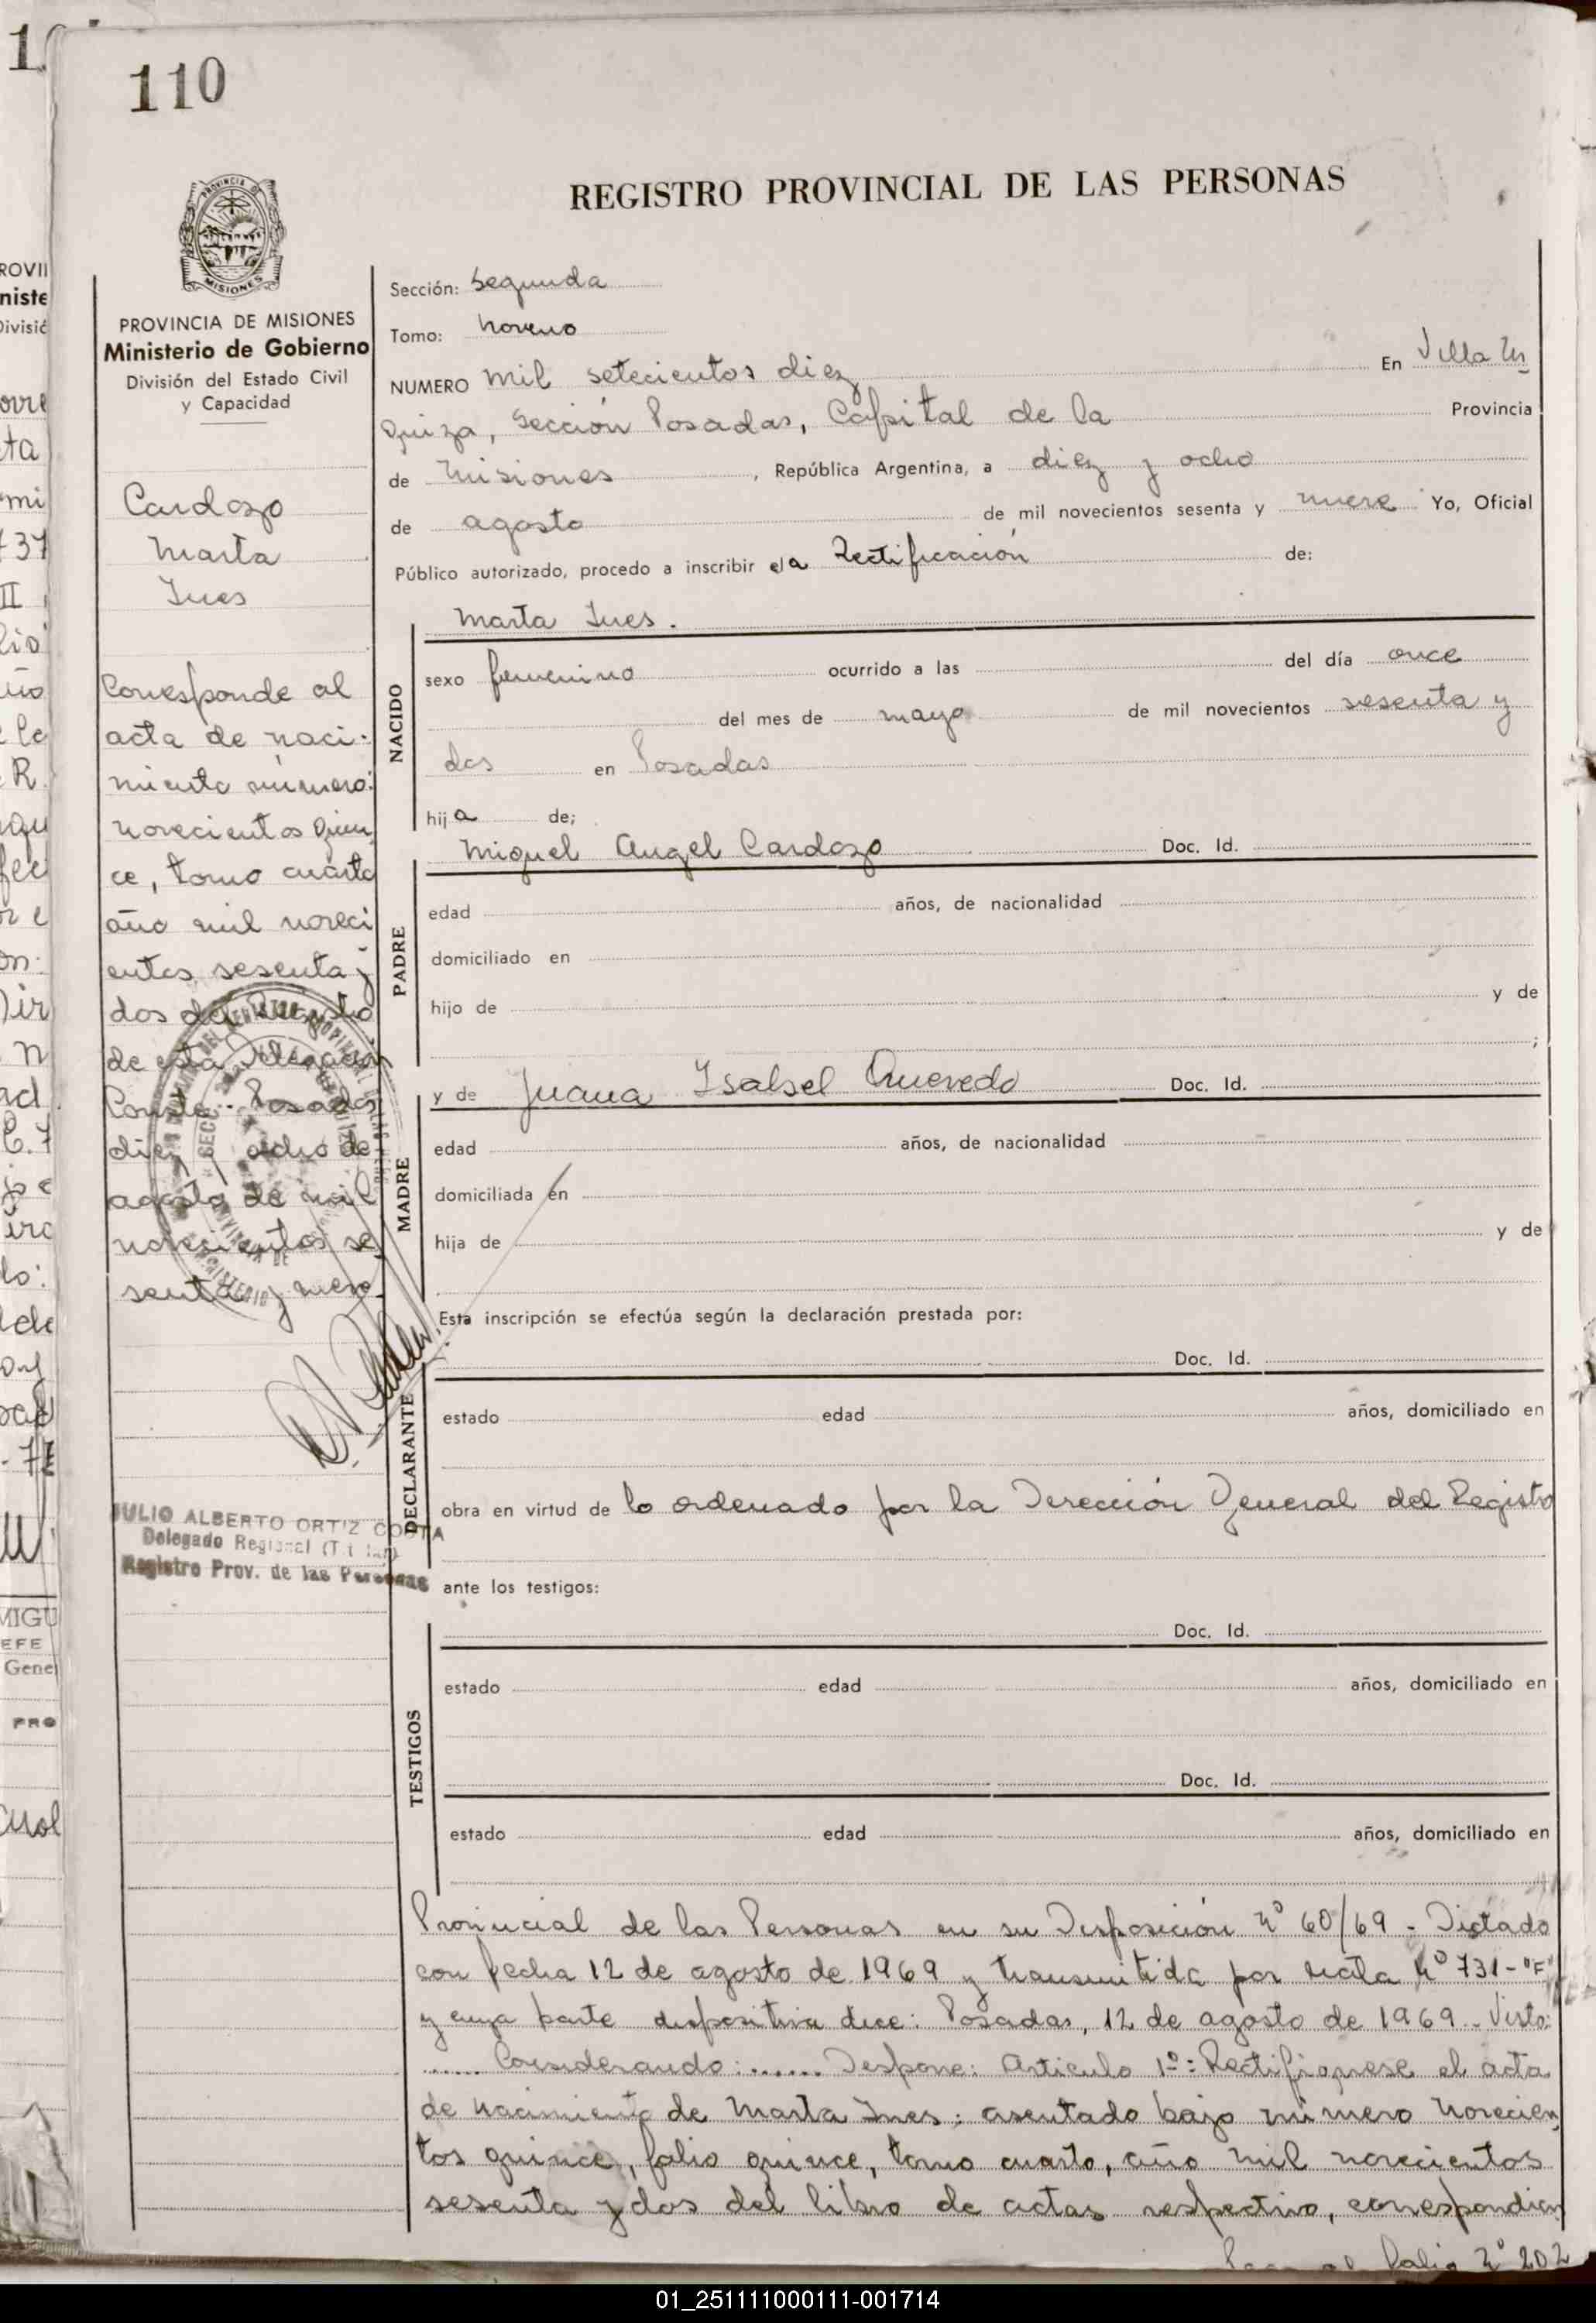 110
REGISTRO PROVINCIAL DE LAS PERSONAS
PROVINCIA DE MISIONES
Ministerio de Gobierno
División del Estado Civil
y Capacidad
Cardozo
Marta
Ines
Corresponde al
acta de naci-
miento número:
novecientos quin
ce, tomo cuarto
año mil noveci
entos sesenta y
dos del Registro
de esta Delegación
Conste.- Posadas
diez y ocho de
agosto de mil
novecientos se
senta y nueve
JULIO ALBERTO ORTIZ COSTA
Delegado Regional
Registro Prov. de las Personas
Sección: Segunda
Tomo: Noveno
NUMERO Mil setecientos diez En Villa Ur
quiza, Sección Posadas, Capital de la Provincia
de Misiones, República Argentina, a diez y ocho
de agosto de mil novecientos sesenta y nueve Yo, Oficial
Público autorizado, procedo a inscribir ela Rectificación de:
Marta Ines.
NACIDO
sexo femenino ocurrido a las del día once
del mes de mayo de mil novecientos sesenta y
dos en Posadas
hija de;
Miguel Angel Cardozo Doc. Id.
PADRE
edad años, de nacionalidad
domiciliado en
hijo de y de
;
y de Juana Isabel Quevedo Doc. Id.
MADRE
edad años, de nacionalidad
domiciliada en
hija de y de
Esta inscripción se efectúa según la declaración prestada por:
Doc. Id.
DECLARANTE
estado edad años, domiciliado en
obra en virtud de lo ordenado por la Dirección General del Registro
ante los testigos:
Doc. Id.
TESTIGOS
estado edad años, domiciliado en
Doc. Id.
estado edad años, domiciliado en
Provincial de las Personas en su Disposición Nº 60/69 - Dictado
con fecha 12 de agosto de 1969 y transmitida por nota Nº 731-"F"
y cuya parte dispositiva dice: Posadas, 12 de agosto de 1969.- Visto:
...... Considerando:....... Dispone: Articulo 1º: Rectifiquese el acta
de nacimiento de Marta Ines; asentado bajo número novecien
tos quince, folio quince, tomo cuarto, año mil novecientos
sesenta y dos del libro de actas respectivo, correspondien
Pasa al folio Nº 202
01_251111000111-001714